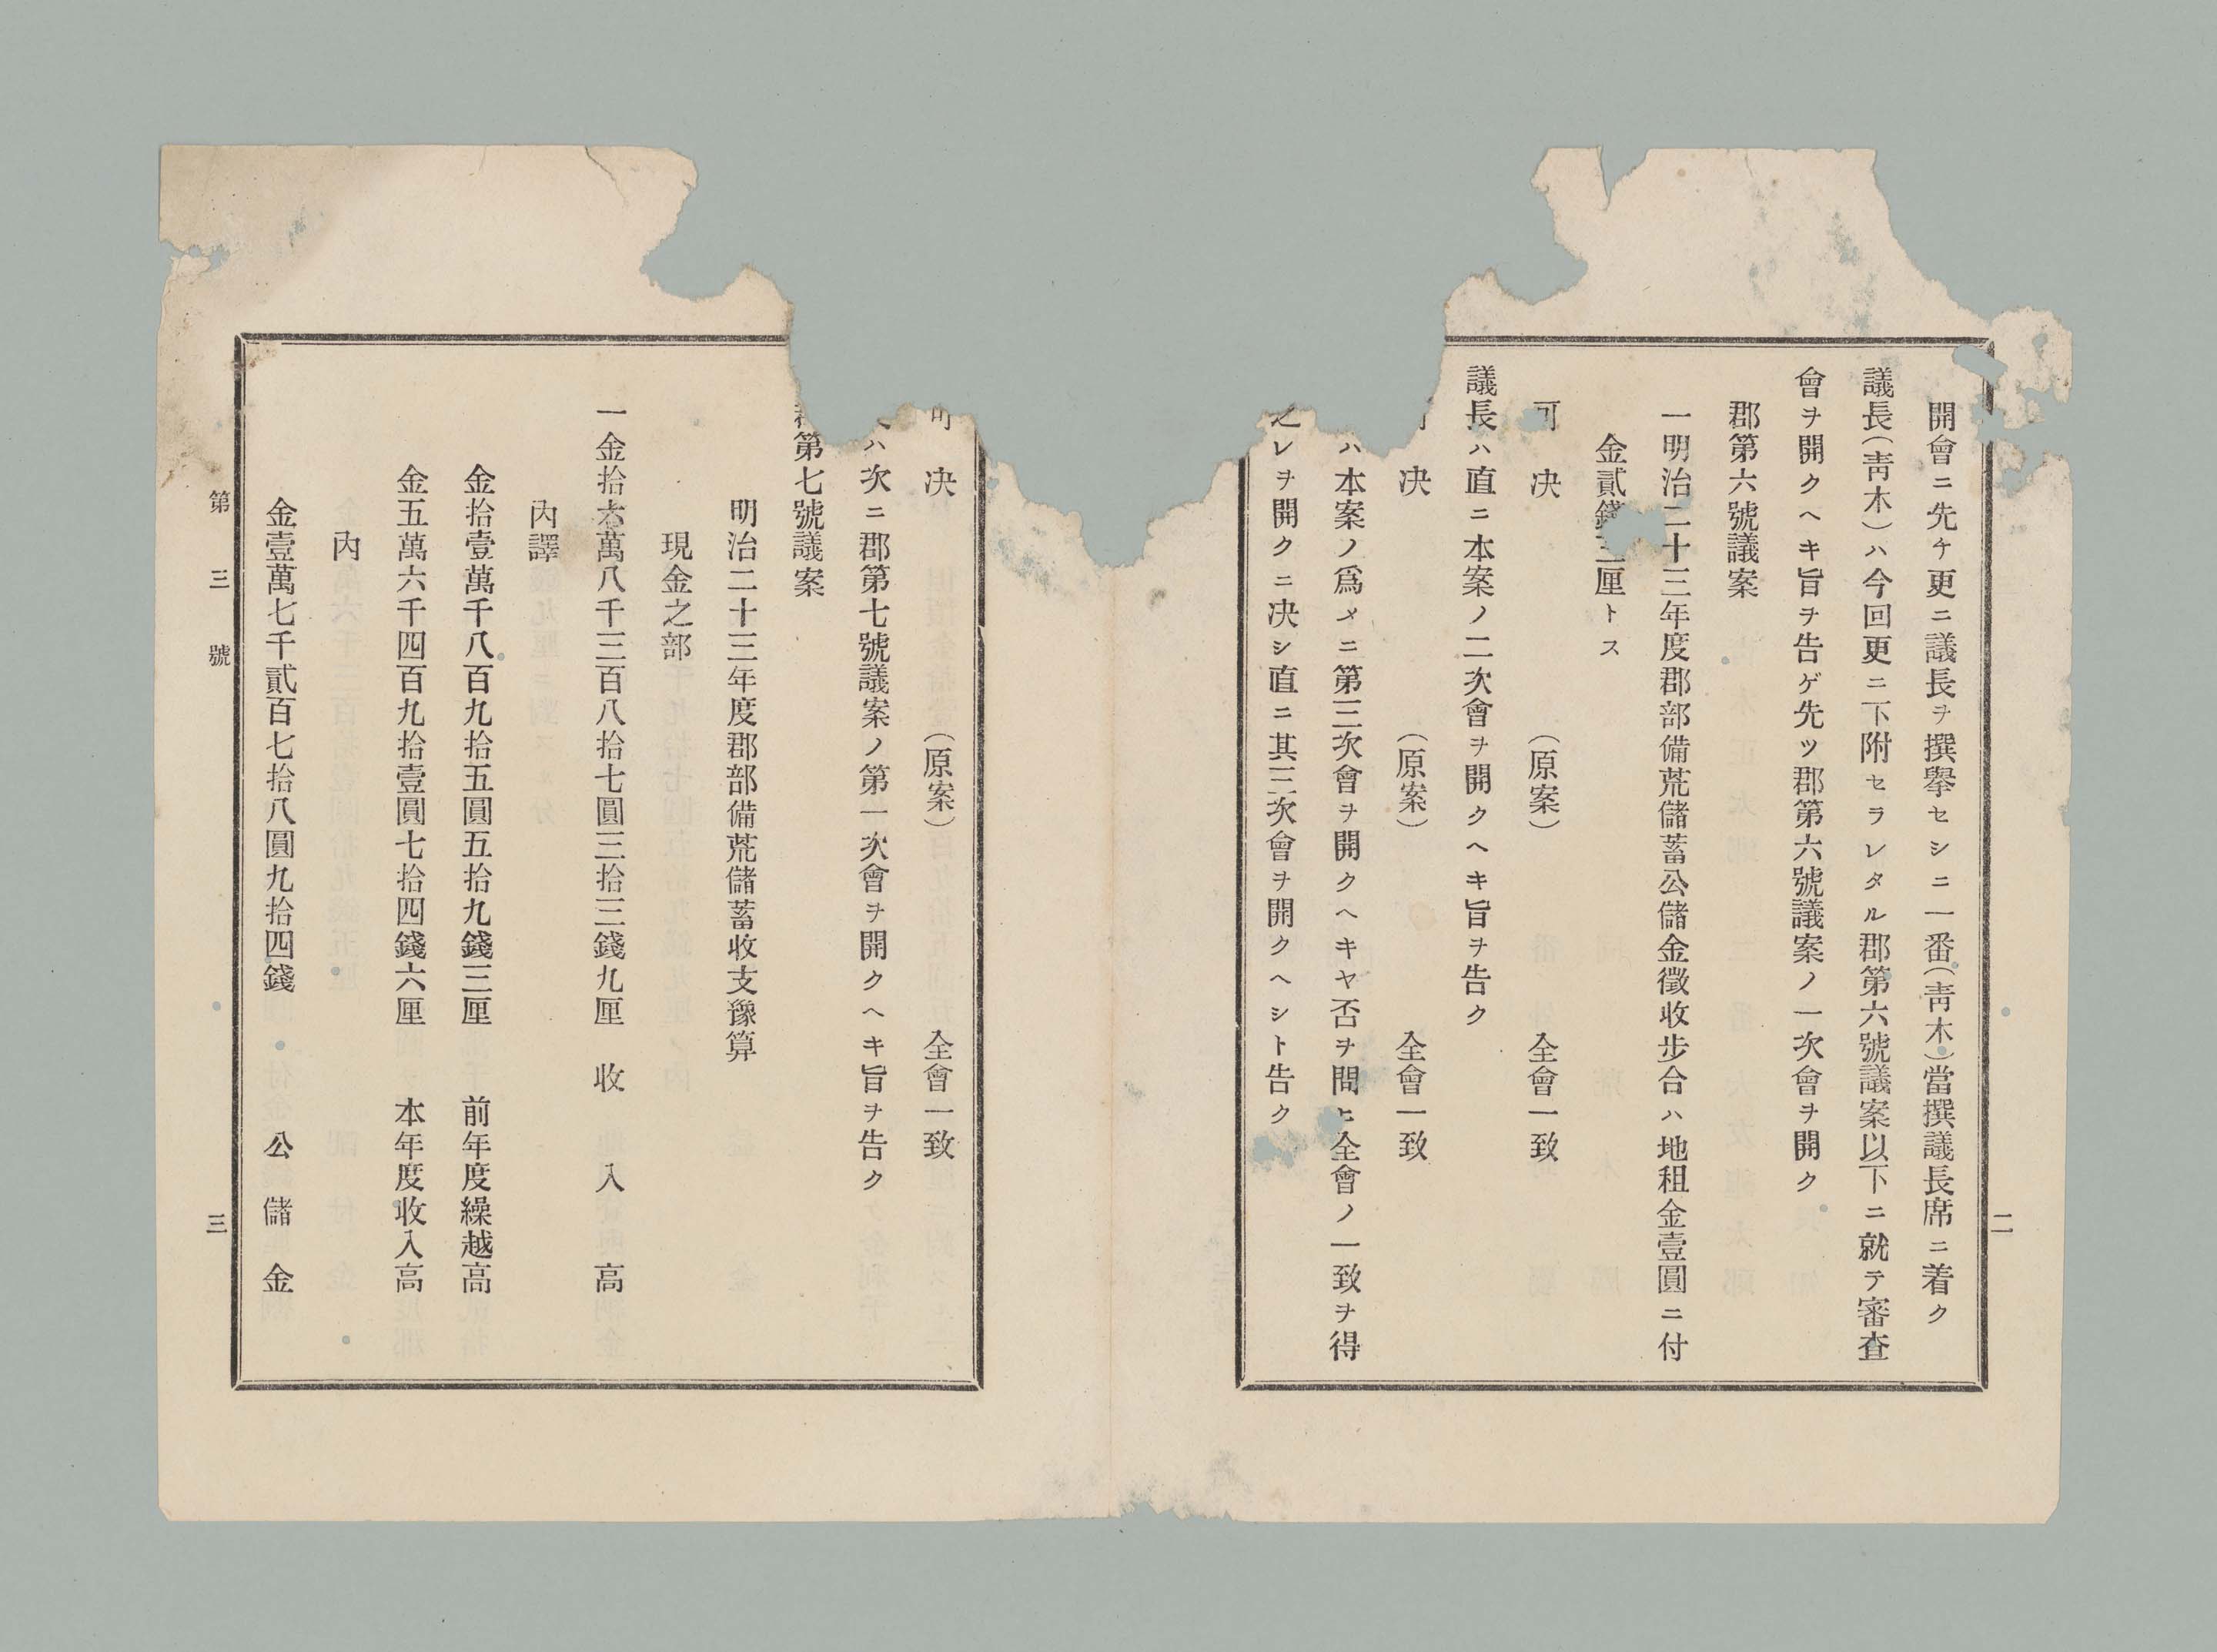 開會ニ先ケ更ニ議長ヲ撰擧セシニ一番(靑木)當撰議長席ニ着ク
議長(靑木)ハ今回更ニ下附セラレタル郡第六號議案以下ニ就テ審査
會ヲ開クヘキ旨ヲ告ゲ先ツ郡第六號議案ノ一次會ヲ開ク
郡第六號議案
一明治二十三年度郡部備荒儲蓄公儲金徵收步合ハ地租金壹圓ニ付
金貳錢三厘トス
可決(原案)全會一致
議長ハ直ニ本案ノ二次會ヲ開クヘキ旨ヲ告ク
決(原案)全會一致
ハ本案ノ爲メニ第三次會ヲ開クヘキヤ否ヲ問ヒ全會ノ一致ヲ得
之レヲ開クニ決シ直ニ其三次會ヲ開クヘシト告ク
二
可決(原案)全會一致
ハ次ニ郡第七號議案ノ第一次會ヲ開クヘキ旨ヲ告ク
第七號議案
明治二十三年度郡部備荒儲蓄收支豫算
現金之部
一金拾六萬八千三百八拾七圓三拾三錢九厘 收入高
內譯
金拾壹萬千八百九拾五圓五拾九錢三厘 前年度繰越高
金五萬六千四百九拾壹圓七拾四錢六厘 本年度收入高
內
金壹萬七千貳百七拾八圓九拾四錢 公儲金
第三號
三